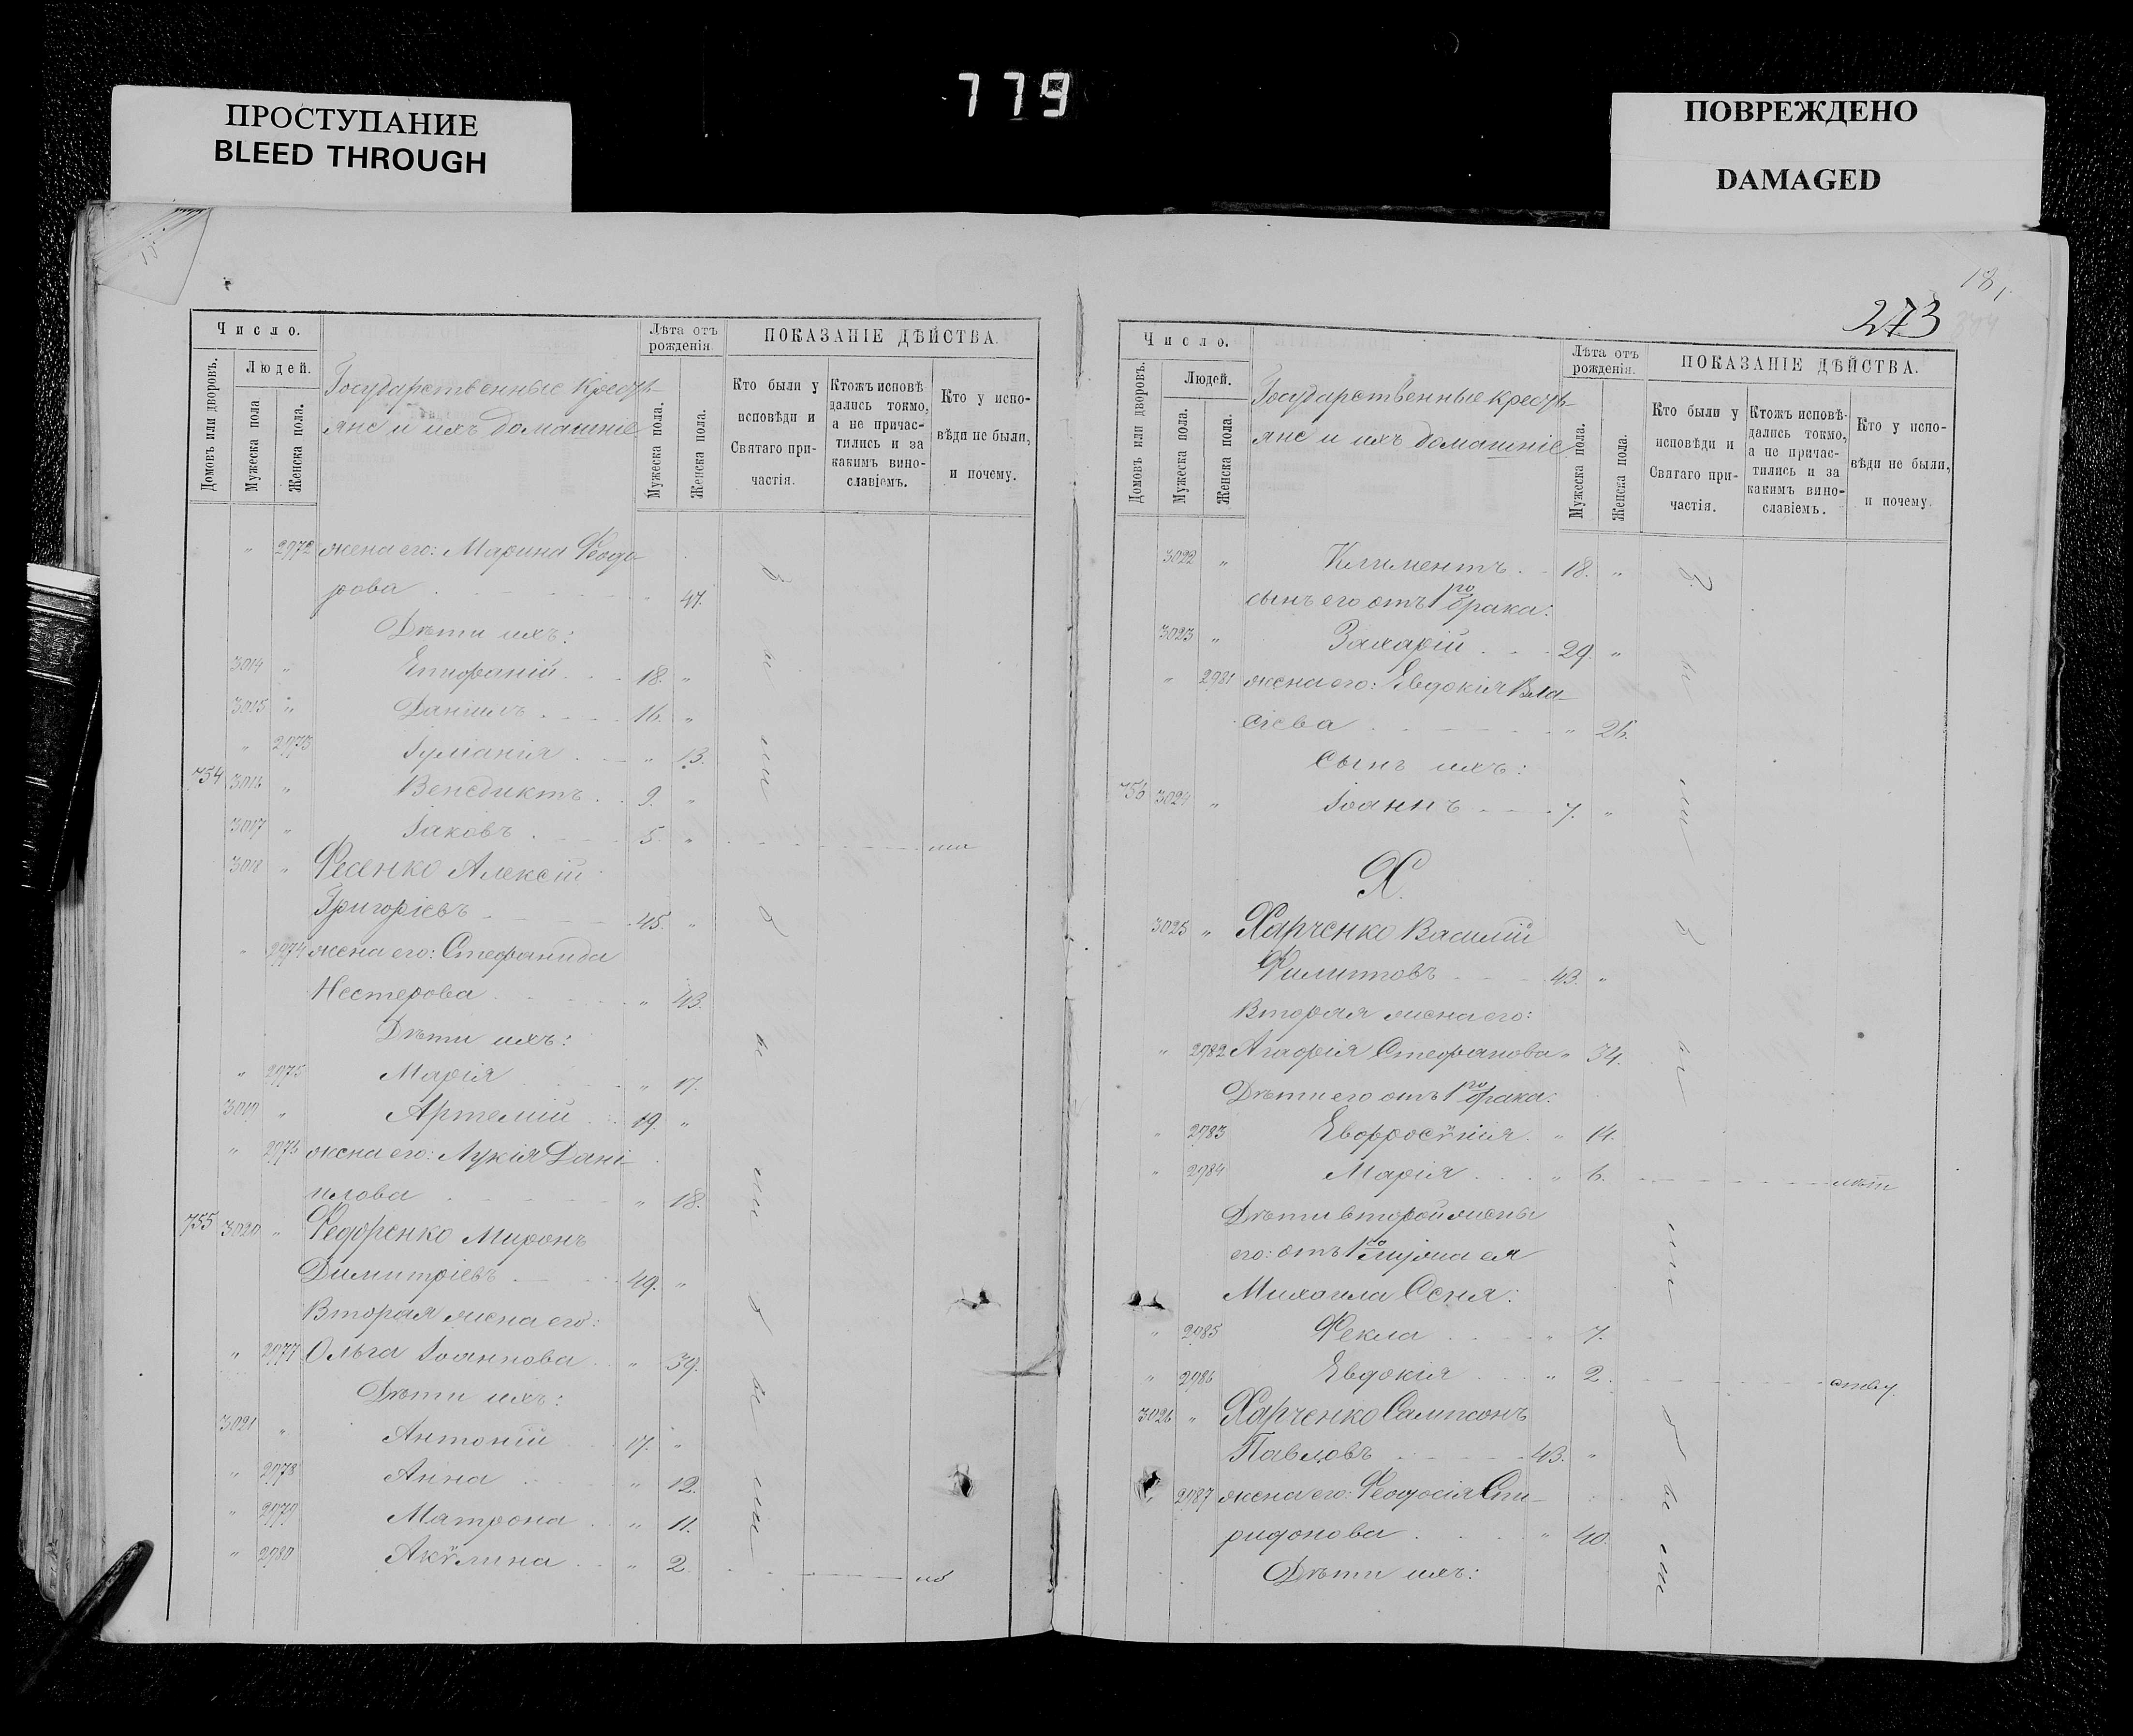 779
ПРОСТУПАНИЕ
BLEED THROUGH
ПОВРЕЖДЕНО
DAMAGED
Число.
Людей.
Домовъ или дворовъ.
Мужеска пола
Женска пола.
Государственные крестья-
яне и ихъ домашніе
Лѣта отъ рожденія.
Мужеска пола.
Женска пола.
ПОКАЗАНІЕ ДѢЙСТВА.
Кто были у исповѣди и Святаго при-частія.
Ктожъ исповѣ-дались токмо, а не причас-тились и за какимъ вино-славіемъ.
Кто у испо-вѣди не были, и почему.
" 2972 жена его: Марина Ѳеодо
рова 47.
Дѣти ихъ:
3014 " Епифаній 18. "
3015 " Даніилъ 16. "
" 2973 Іуліанія " 13.
754 3016 " Венедиктъ 9. "
3017 " Іаковъ 5. "
3018 " Фесенко Алексій
Григоріевъ 45. "
" 2974 жена его: Стефанида
Нестерова " 43.
Дѣти ихъ:
" 2975 Марія " 17.
3019 " Артемій 19. "
" 2976 жена его: Лукія Дані-
илова " 18.
755 3020 " Федоренко Миронъ
Димитріевъ 49. "
Вторая жена его:
" 2977 Ольга Іоаннова " 39.
Дѣти ихъ:
3021 " Антоній 17. "
" 2978 Анна " 12.
" 2979 Матрона " 11.
" 2980 Акѵлина " 2.
были
были
были
273
Число.
Людей.
Домовъ или дворовъ.
Мужеска пола.
Женска пола.
Государственные крестья-
яне и ихъ домашніе
Лѣта отъ рожденія.
Мужеска пола.
Женска пола.
ПОКАЗАНІЕ ДѢЙСТВА.
Кто были у исповѣди и Святаго при-частія.
Ктожъ исповѣ-дались токмо, а не причас-тились и за какимъ вино-славіемъ.
Кто у испо-вѣди не были, и почему.
3022 " Климентъ 18. "
сынъ его отъ 1го брака:
3023 " Захарій 29. "
" 2981 жена его: Евдокія Вла-
сіева " 26.
Сынъ ихъ:
756 3024 " Іоаннъ 7. "
Х.
3025 " Харченко Василій
Филипповъ 43. "
Вторая жена его:
" 2982 Агафія Стефанова " 34.
Дѣти его отъ 1го брака:
" 2983 Евфросѵнія " 14.
" 2984 Марія " 6. лѣт
Дѣти второй жены
его: отъ 1го мужа ея
Михаила Сеня:
" 2985 Фекла " 7.
" 2986 Евдокія " 2. ству.
3026 " Харченко Сампсонъ
Павловъ 43. "
" 2987 жена его: Ѳеодосія Спи-
ридонова " 40.
Дѣти ихъ:
были
были
были